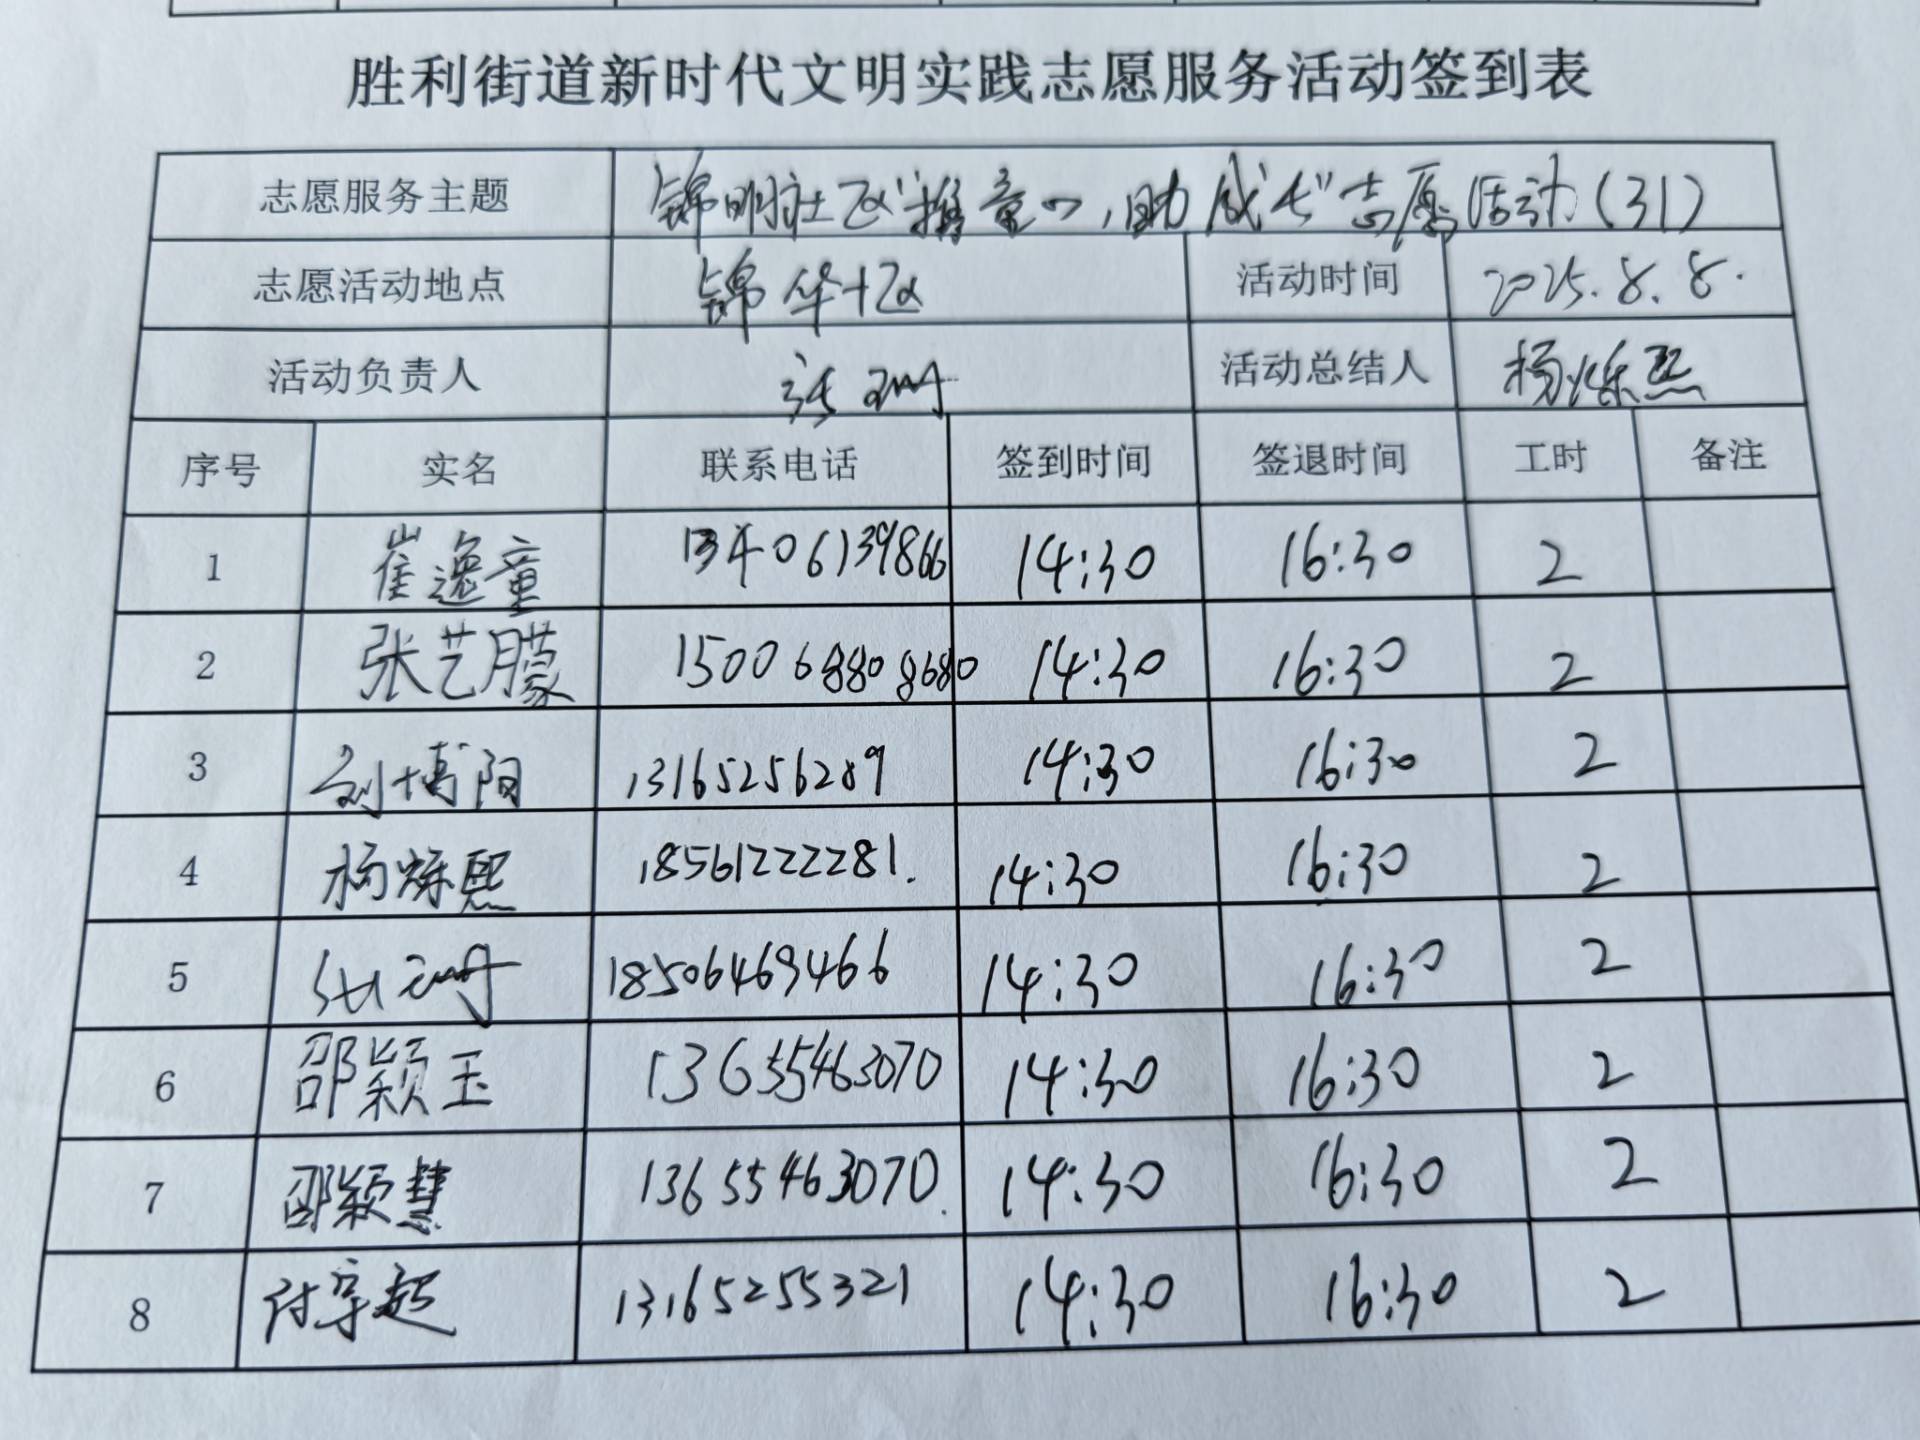 胜利街道新时代文明实践志愿服务活动签到表
志愿服务主题 锦明社区“携童心,助成长”志愿活动(31)
志愿活动地点 锦华十区 活动时间 2025.8.8.
活动负责人 活动总结人 杨烁熙
序号 实名 联系电话 签到时间 签退时间 工时 备注
1 崔逸童 13406139866 14:30 16:30 2
2 张艺朦 14:30 16:30 2
3 刘博阳 13165256289 14:30 16:30 2
4 杨烁熙 18561222281. 14:30 16:30 2
5 18506469466 14:30 16:30 2
6 邵颖玉 13655463070 14:30 16:30 2
7 邵颖慧 13655463070. 14:30 16:30 2
8 13165255321 14:30 16:30 2